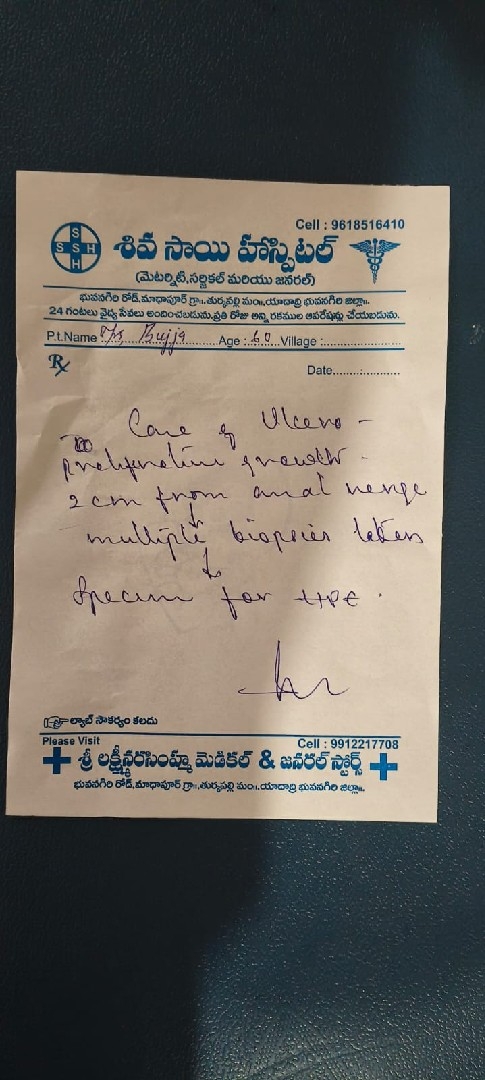 Cell : 9618516410
S
S S H
H
శివ సాయి హాస్పిటల్
(మెటర్నిటి, సర్జికల్ మరియు జనరల్)
భువనగిరి రోడ్, మాధాపూర్ గ్రా॥, తుర్కపల్లి మం॥, యాదాద్రి భువనగిరి జిల్లా॥.
24 గంటలు వైద్య సేవలు అందించబడును. ప్రతి రోజు అన్ని రకముల ఆపరేషన్లు చేయబడును.
P.t.Name Bujja Age : 60 Village :
Rx
Date
Case of Ulcero -
proliferative growth -
2 cm from anal verge
multiple biopsies taken
Specimen for HPE.
ల్యాబ్ సౌకర్యం కలదు
Please Visit
Cell : 9912217708
శ్రీ లక్ష్మీనరసింహ్మ మెడికల్ & జనరల్ స్టోర్స్
భువనగిరి రోడ్, మాధాపూర్ గ్రా॥, తుర్కపల్లి మం॥, యాదాద్రి భువనగిరి జిల్లా॥.